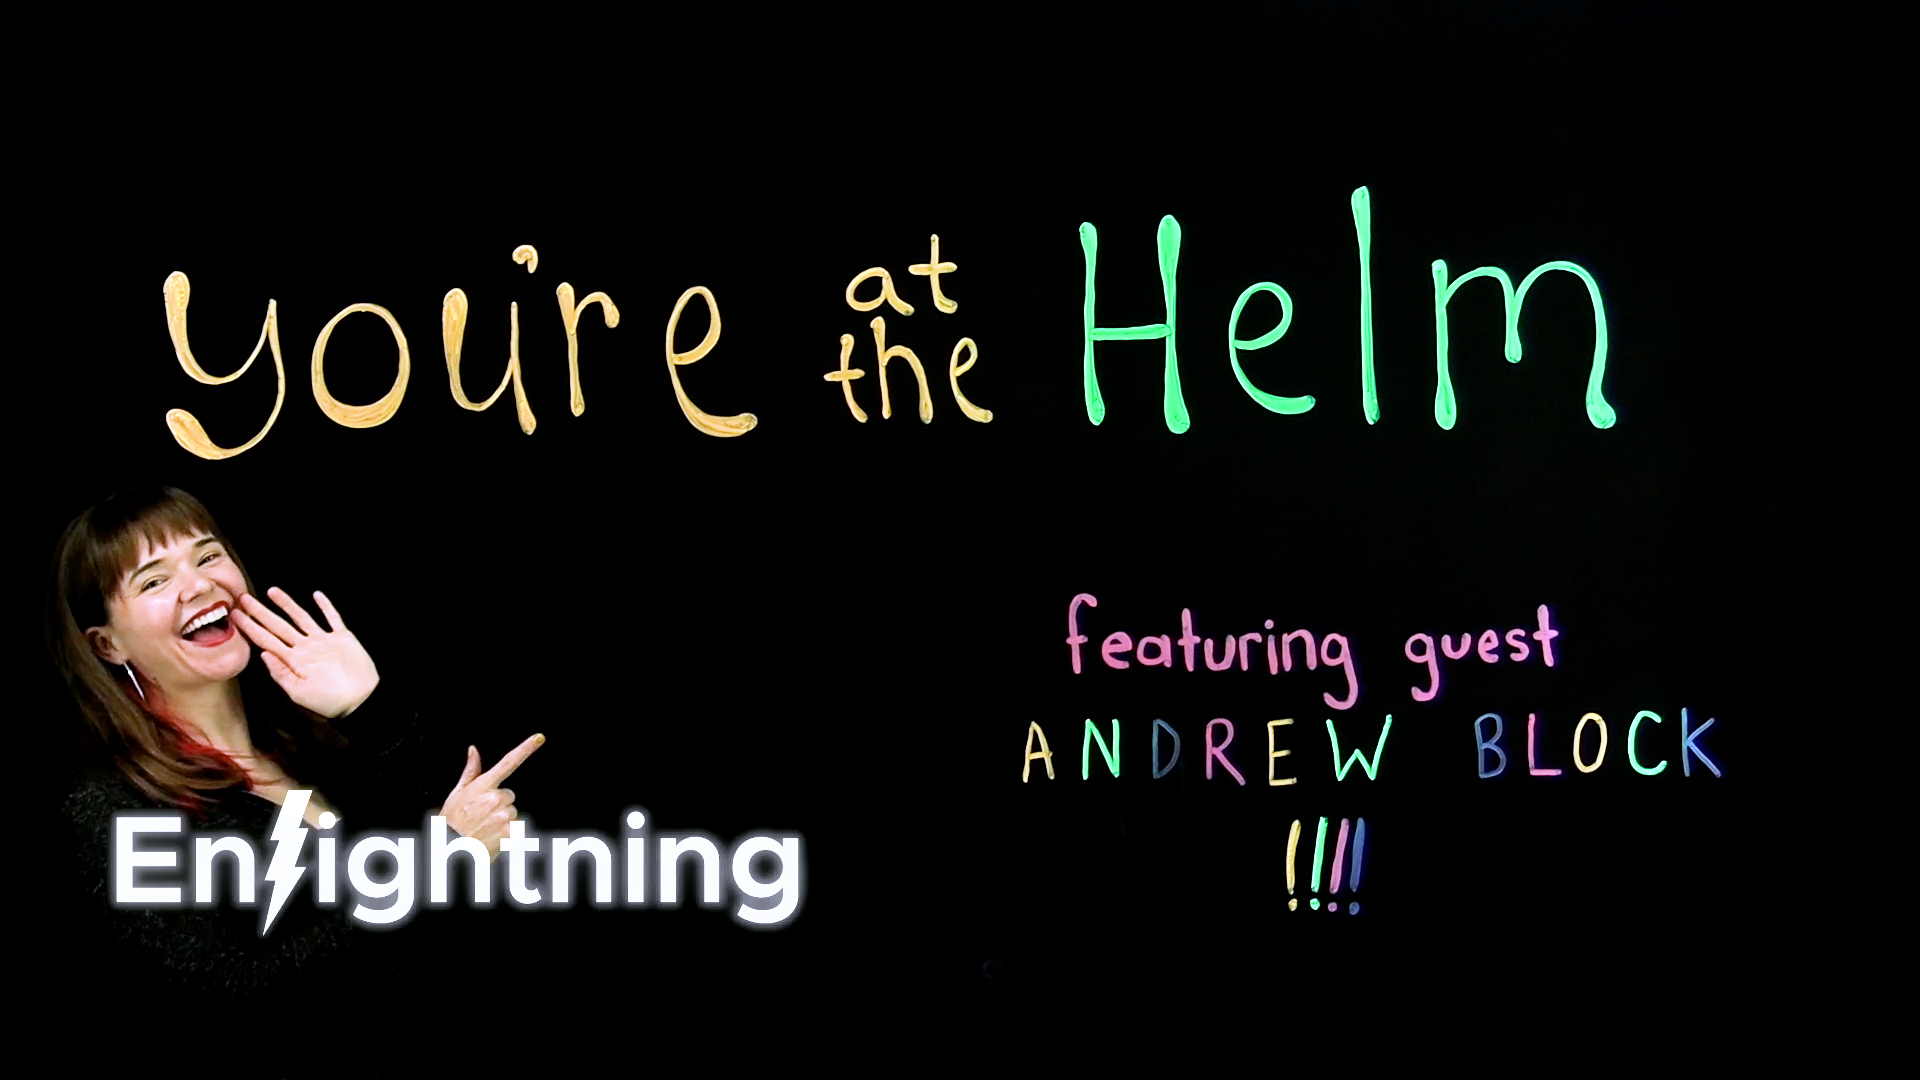 You're at the Helm
featuring guest
ANDREW BLOCK
!!!!
Enlightning